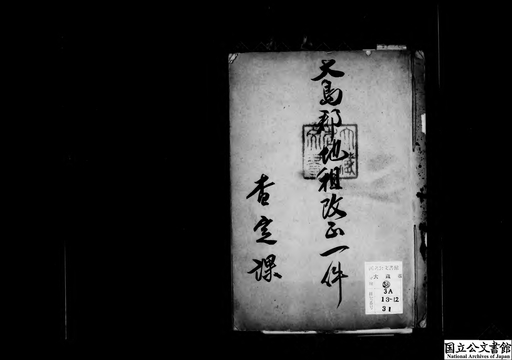 大島郡地租改正一件
査定課
3A
13-12
31
国立公文書館
National Archives of Japan